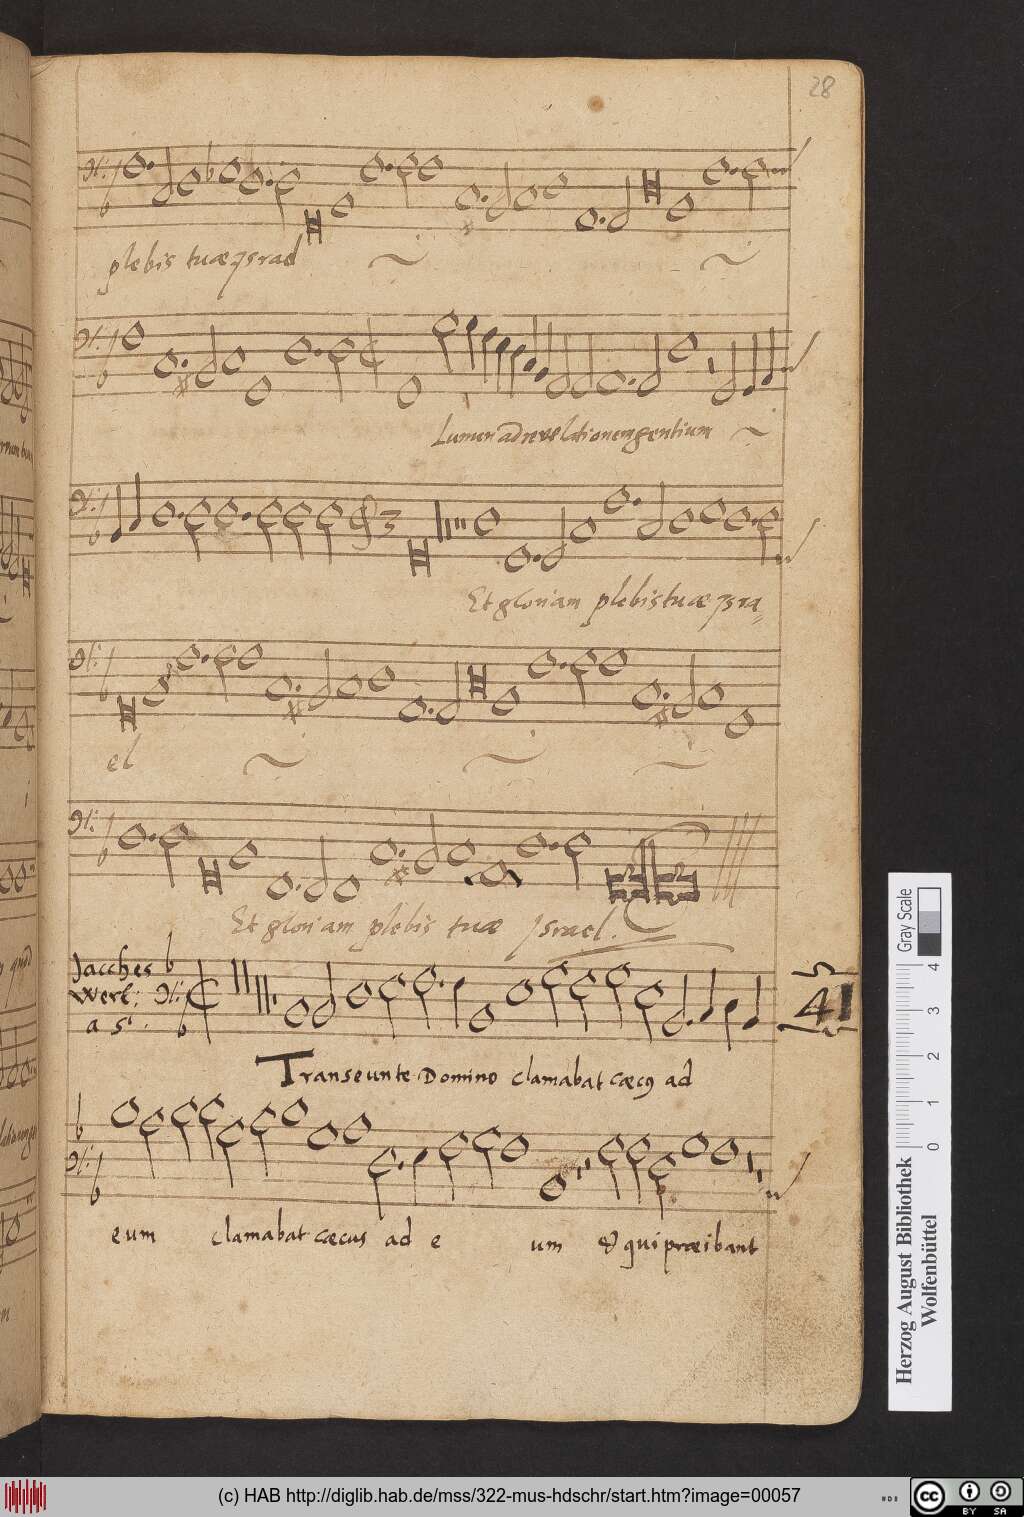 28
plebis tuæ Jsrael
Lumen ad revelationem gentium
Et gloriam plebis tuæ Jsra„
el
Et gloriam plebis tuæ Jsrael.
Jacches
Werl;
a 5
41
Transeunte Domino clamabat cæcꝰ ad
eum clamabat cæcus ad e um & qui præibant
Gray Scale
4
3
2
1
0
Herzog August Bibliothek
Wolfenbüttel
(c) HAB http://diglib.hab.de/mss/322-mus-hdschr/start.htm?image=00057
cc
BY SA